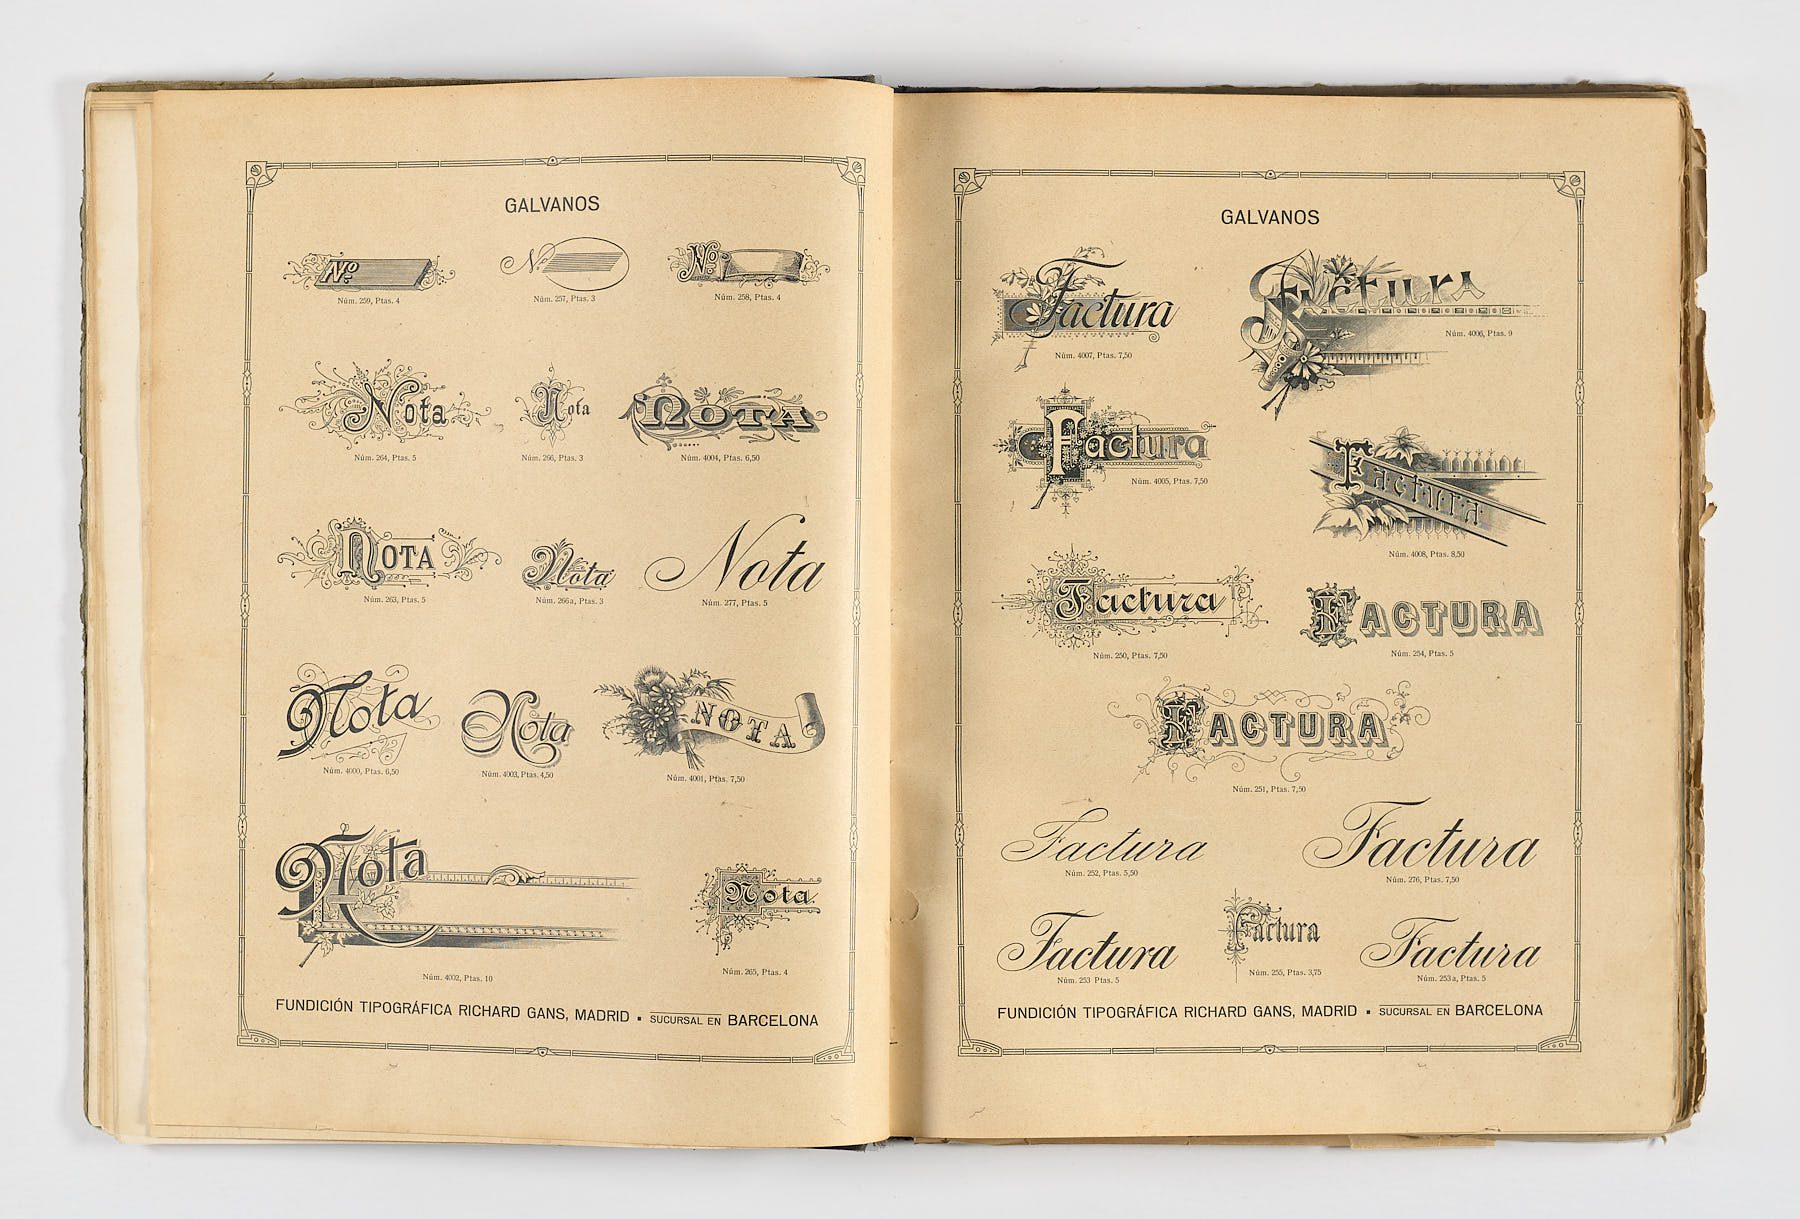 GALVANOS
Nº
Núm. 259, Ptas. 4
Nº
Núm. 257, Ptas. 3
Nº
Núm. 258, Ptas. 4
Nota
Núm. 264, Ptas. 5
Nota
Núm. 266, Ptas. 3
NOTA
Núm. 4004, Ptas. 6,50
NOTA
Núm. 263, Ptas. 5
Nota
Núm. 266a, Ptas. 3
Nota
Núm. 277, Ptas. 5
Nota
Núm. 4000, Ptas. 6,50
Nota
Núm. 4003, Ptas. 4,50
NOTA
Núm. 4001, Ptas. 7,50
Nota
Núm. 4002, Ptas. 10
Nota
Núm. 265, Ptas. 4
FUNDICIÓN TIPOGRÁFICA RICHARD GANS, MADRID ▪ SUCURSAL EN BARCELONA
GALVANOS
Factura
Núm. 4007, Ptas. 7,50
Factura
Núm. 4006, Ptas. 9
Factura
Núm. 4005, Ptas. 7,50
Factura
Núm. 4008, Ptas. 8,50
Factura
Núm. 250, Ptas. 7,50
FACTURA
Núm. 254, Ptas. 5
FACTURA
Núm. 251, Ptas. 7,50
Factura
Núm. 252, Ptas. 5,50
Factura
Núm. 276, Ptas. 7,50
Factura
Núm. 253 Ptas. 5
Factura
Núm. 255, Ptas. 3,75
Factura
Núm. 253a, Ptas. 5
FUNDICIÓN TIPOGRÁFICA RICHARD GANS, MADRID ▪ SUCURSAL EN BARCELONA